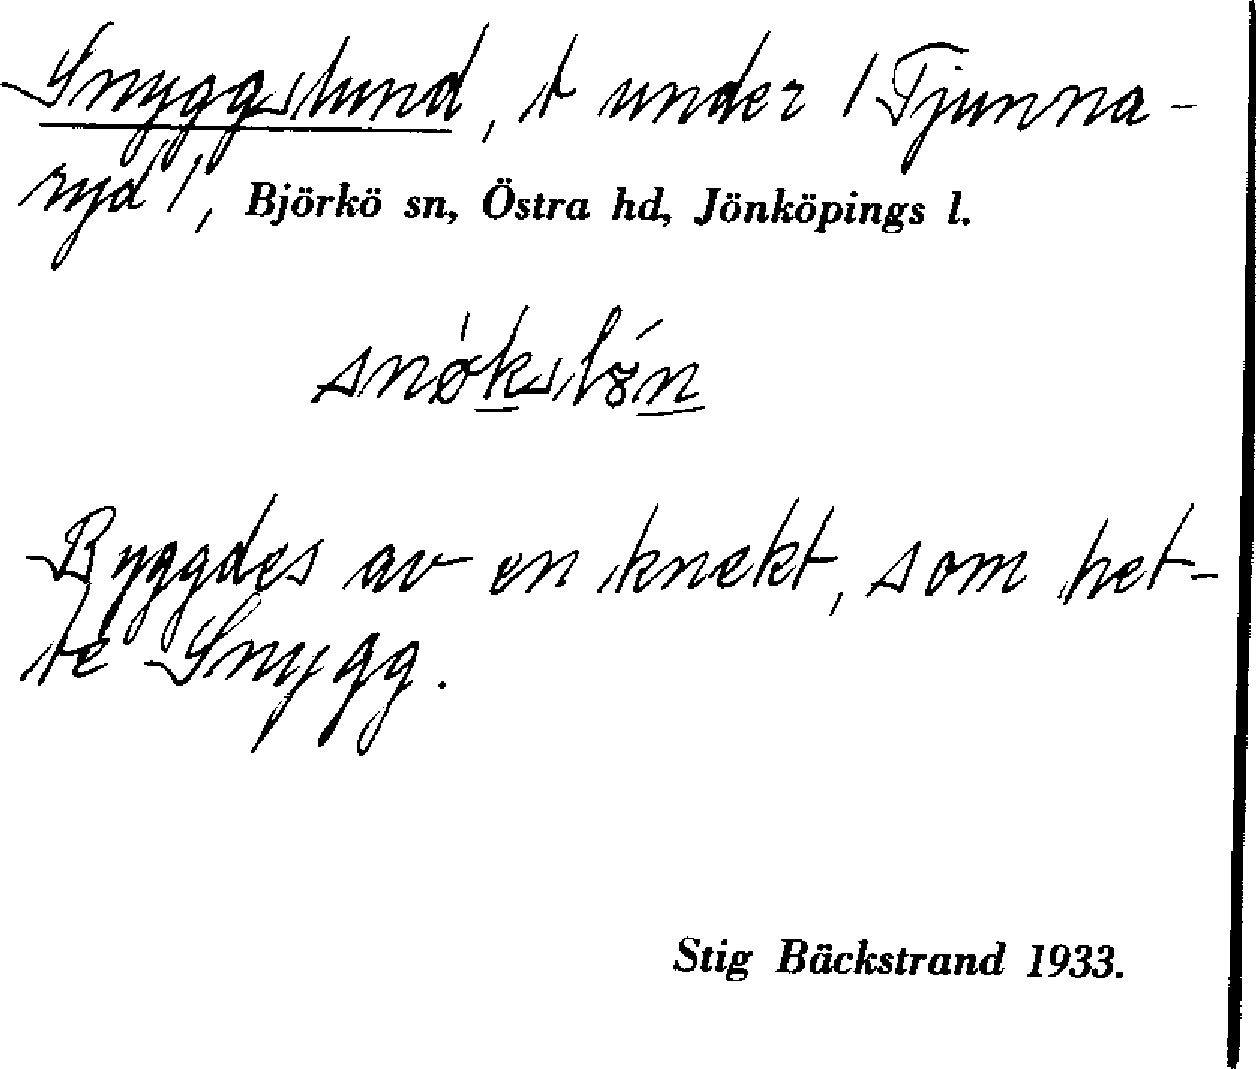 Snyggslund, t under /Tjunna-
ryd/, Björkö sn, Östra hd, Jönköpings l.
snø̀kslɵ́n
Byggdes av en knekt, som het-
te Snygg.
Stig Bäckstrand 1933.